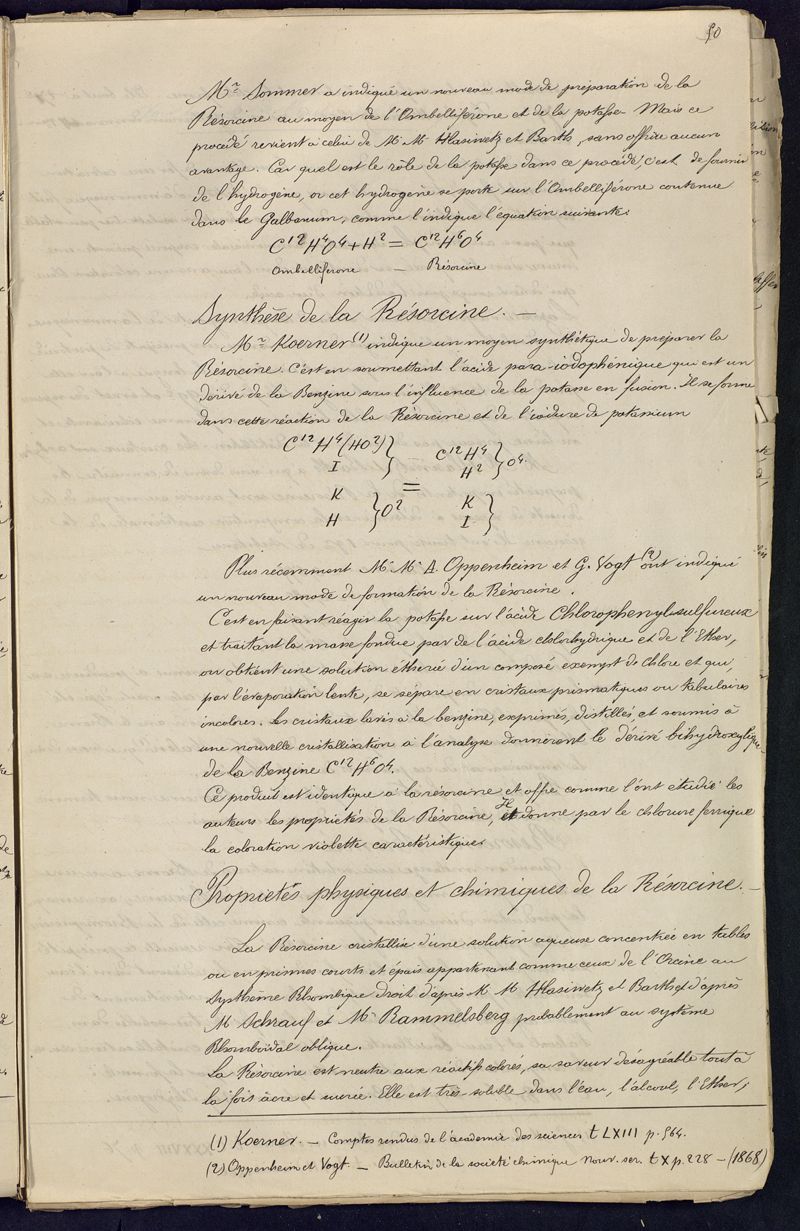 10
Mr Sommer a indiqué un nouveau mode de préparation de la
Résorcine au moyen de l'Ombelliférone et de la potasse. Mais ce
procédé revient à celui de M. M. Hlasiwetz et Barth, sans offrir aucun
avantage. Car quel est le rôle de la potasse dans ce procédé, c'est de fournir
de l'hydrogène, or cet hydrogène se porte sur l'Ombelliférone contenue
dans le Galbanum, comme l'indique l'équation suivante:
C12H4O4 + H2 = C12H6O4
Ombelliférone — Résorcine
Synthèse de la Résorcine. —
Mr Koerner (1) indique un moyen synthétique de préparer la
Résorcine. C'est en soumettant l'acide para-iodophénique qui est un
dérivé de la Benzine sous l'influence de la potasse en fusion. Il se forme
dans cette réaction de la Résorcine et de l'iodure de potassium
C12H4(HO2) } — C12H4 } O4.
I H2
K } O2 = K }
H I
Plus récemment M. M. A. Oppenheim et G. Vogt (2) ont indiqué
un nouveau mode de formation de la Résorcine.
C'est en faisant réagir la potasse sur l'acide Chlorophenylsulfureux
et traitant la masse fondue par de l'acide chlorhydrique et de l'Ether,
on obtient une solution éthérée d'un composé exempt de chlore et qui,
par l'évaporation lente, se sépare en cristaux prismatiques ou tabulaires
incolores. Les cristaux lavés à la benzine, exprimés, distillés et soumis à
une nouvelle cristallisation à l'analyse donnèrent le dérivé bihydroxylique
de la Benzine C12H6O4.
Ce produit est identique à la résorcine et offre comme l'ont etudié les
auteurs les propriétés de la Résorcine, Il donne par le chlorure ferrique
la coloration violette caractéristique
Propriétés physiques et chimiques de la Résorcine. —
La Résorcine cristallise d'une solution aqueuse concentrée en tables
ou en prismes courts et épais appartenant comme ceux de l'Orcine au
Système Rhombique droit d'après M. M. Hlasiwetz et Barth et d'après
M. Schrauf et Mr Rammelsberg probablement au système
Rhomboïdal oblique.
La Résorcine est neutre aux réactifs colorés, sa saveur désagréable tout à
la fois âcre et sucrée. Elle est très-soluble dans l'eau, l'alcool, l'Ether;
(1) Koerner. — Comptes rendus de l'academie des sciences t LXIII p. 564.
(2) Oppenheim et Vogt — Bulletin de la société chimique Nouv. ser. t X p. 228 — (1868)